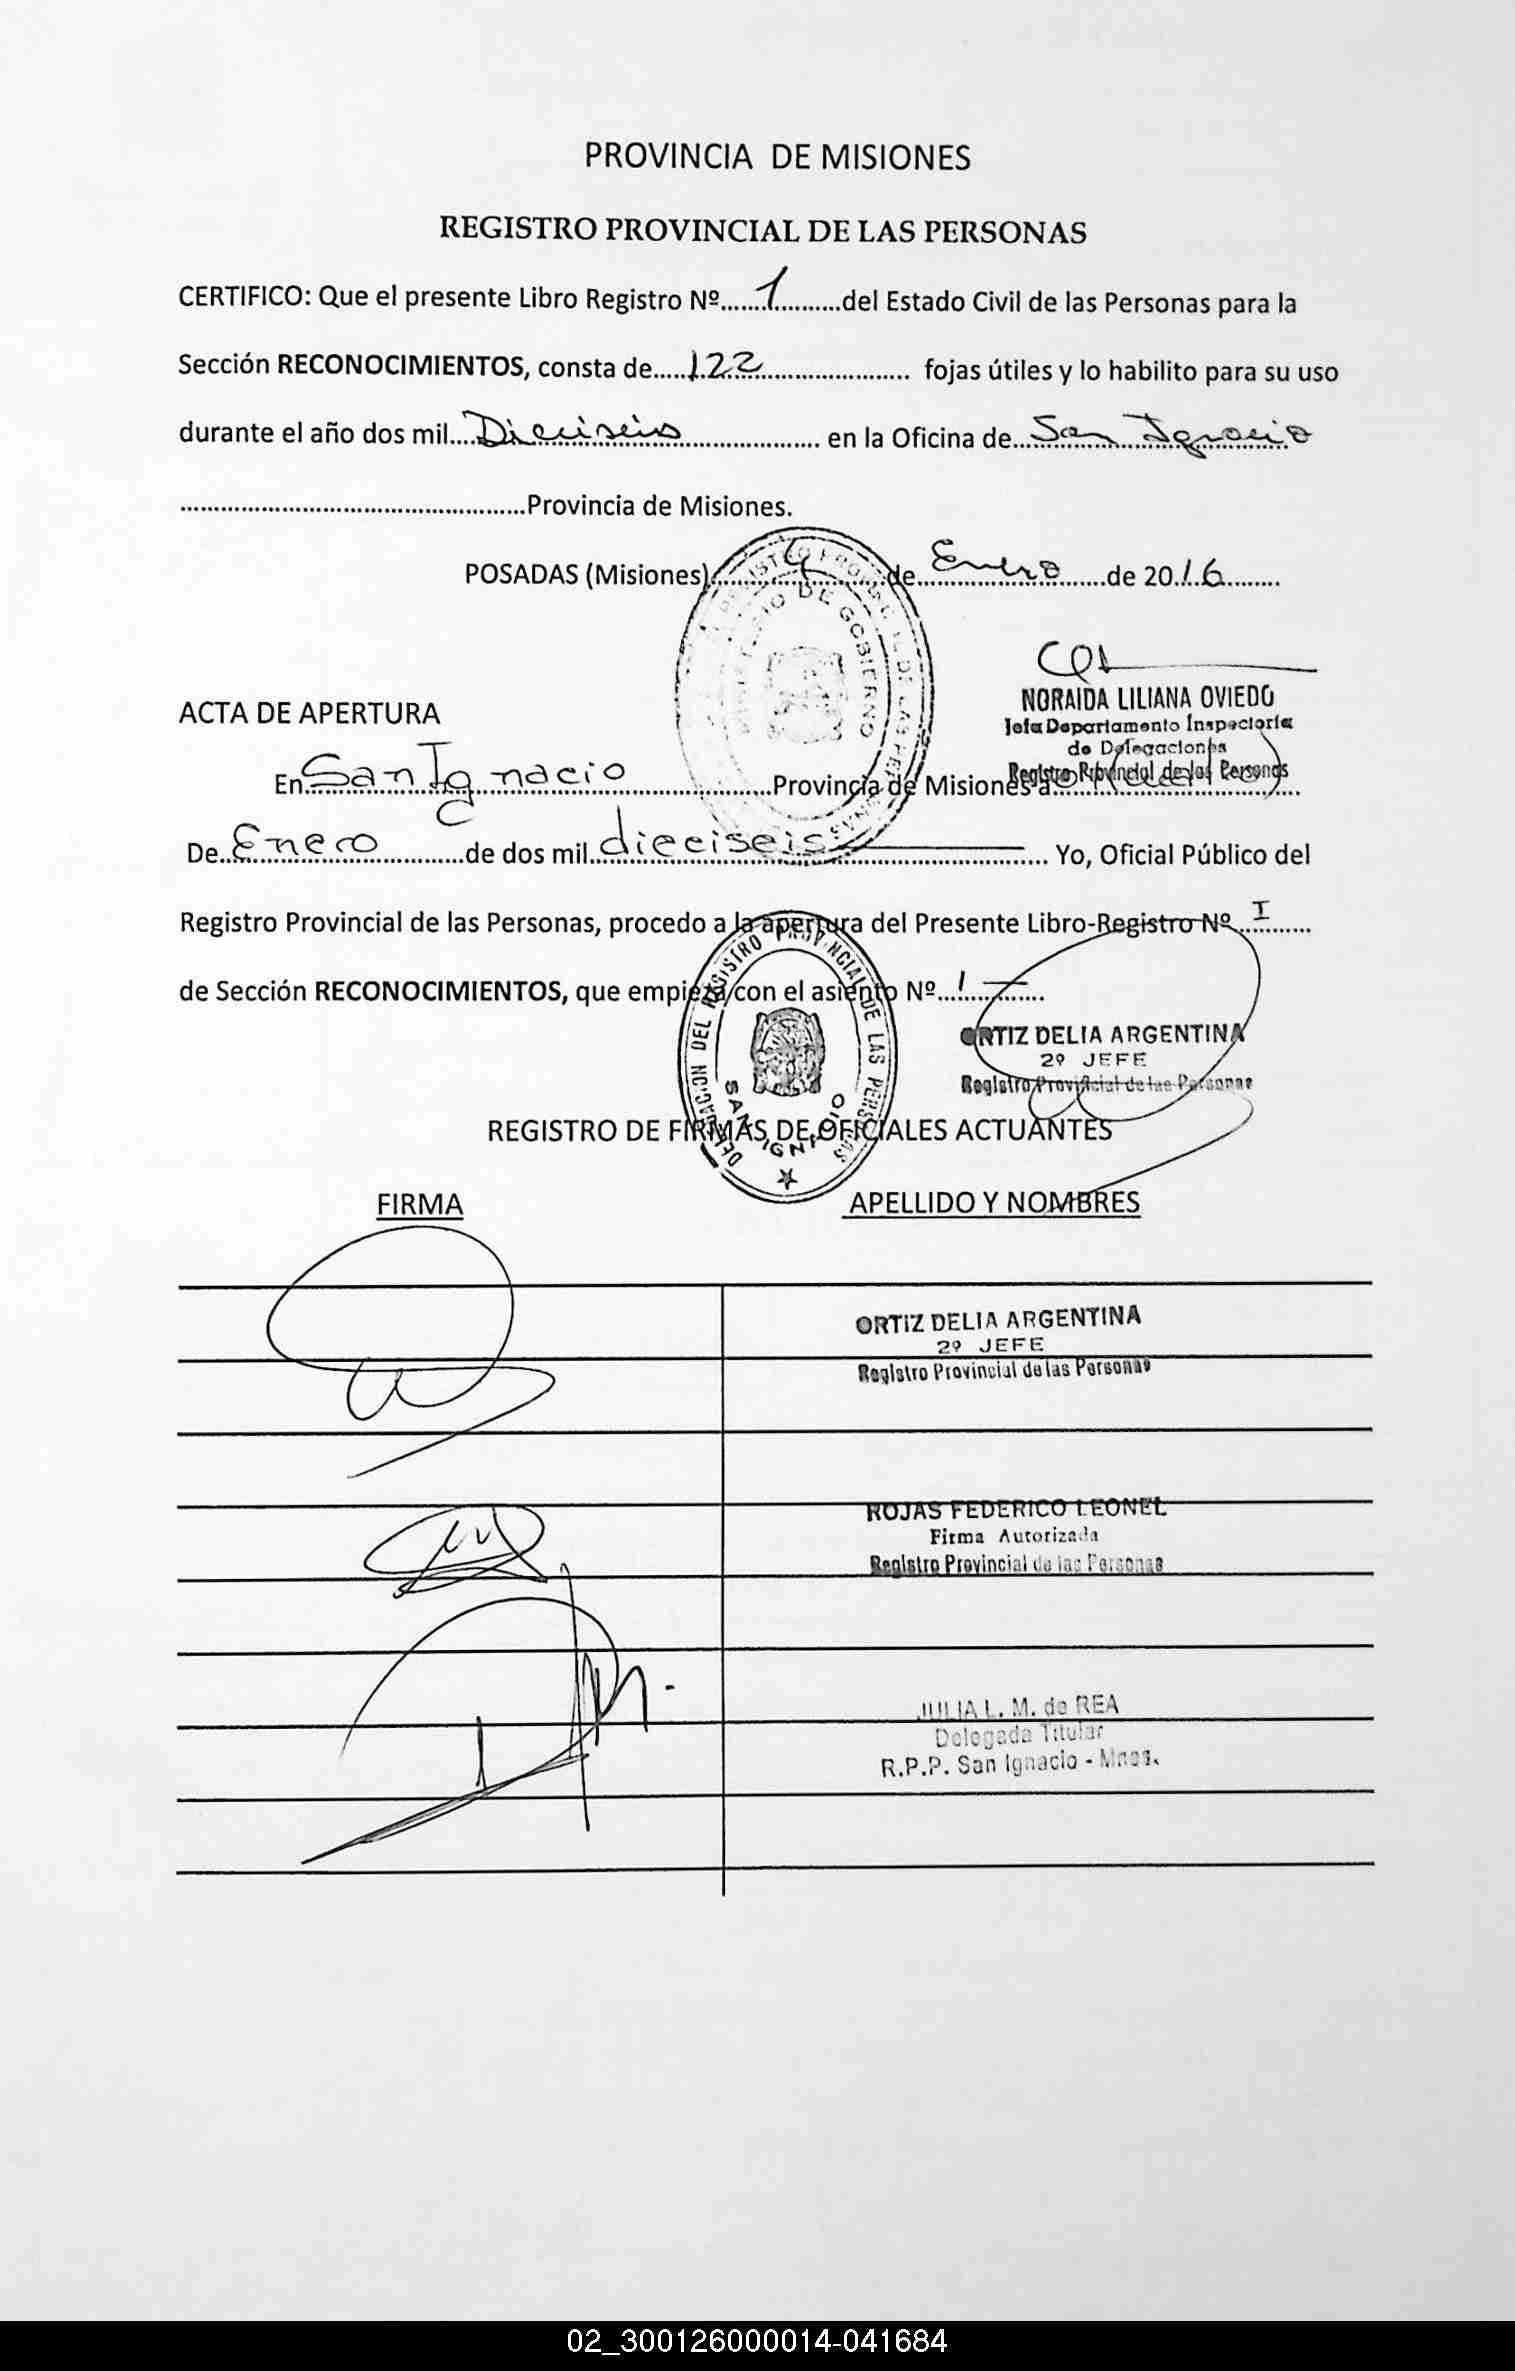 PROVINCIA DE MISIONES
REGISTRO PROVINCIAL DE LAS PERSONAS
CERTIFICO: Que el presente Libro Registro Nº......1.........del Estado Civil de las Personas para la
Sección RECONOCIMIENTOS, consta de.....122................... fojas útiles y lo habilito para su uso
durante el año dos mil....Dieciseis.................... en la Oficina de...San Ignacio
..................................................Provincia de Misiones.
POSADAS (Misiones)..........4..........de....Enero......de 20.16........
REGISTRO PROVINCIAL DE LAS PERSONAS
MINISTERIO DE GOBIERNO
NORAIDA LILIANA OVIEDO
Jefa Departamento Inspectoria
de Delegaciones
Registro Provincial de las Personas
ACTA DE APERTURA
En San Ignacio..................Provincia de Misiones a
De..Enero............de dos mil..dieciseis.................... Yo, Oficial Público del
Registro Provincial de las Personas, procedo a la apertura del Presente Libro-Registro Nº..I..........
de Sección RECONOCIMIENTOS, que empieza con el asiento Nº...1............
DELEGACION DEL REGISTRO PROVINCIAL DE LAS PERSONAS
SAN IGNACIO
ORTIZ DELIA ARGENTINA
2º JEFE
Registro Provincial de las Personas
REGISTRO DE FIRMAS DE OFICIALES ACTUANTES
FIRMA APELLIDO Y NOMBRES
ORTIZ DELIA ARGENTINA
2º JEFE
Registro Provincial de las Personas
ROJAS FEDERICO LEONEL
Firma Autorizada
Registro Provincial de las Personas
JULIA L. M. de REA
Delegada Titular
R.P.P. San Ignacio - Mnes.
02_300126000014-041684